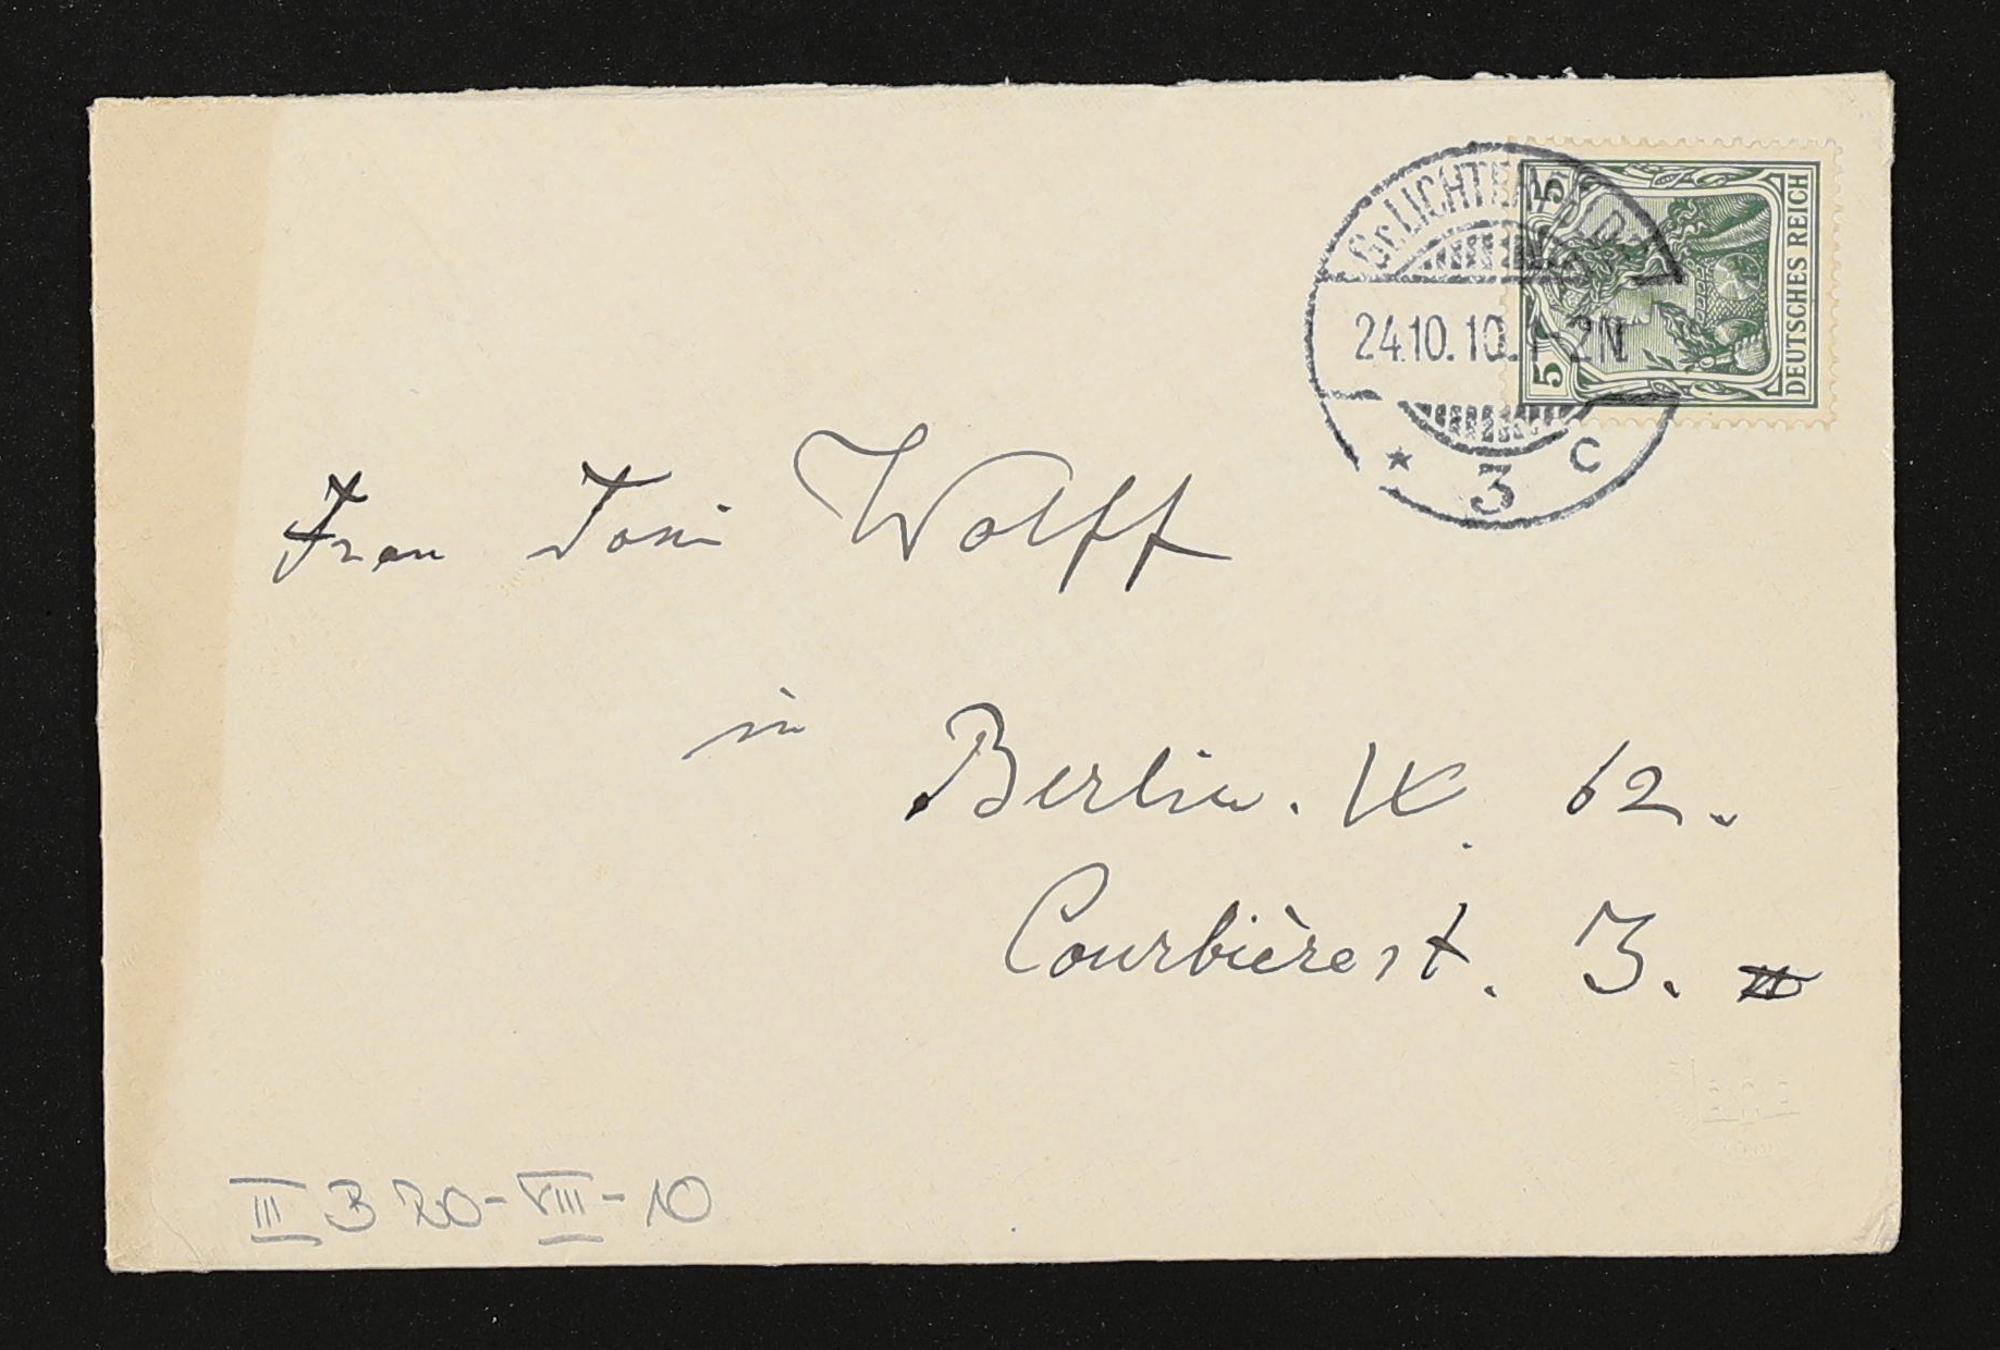 Gr. LICHTERFELDE
24.10.10. 1-2N
* 3 c
5 5
DEUTSCHES REICH
Frau Toni Wolff
in
Berlin. W. 62.
Courbièrest. 3.
III B 20-VIII-10